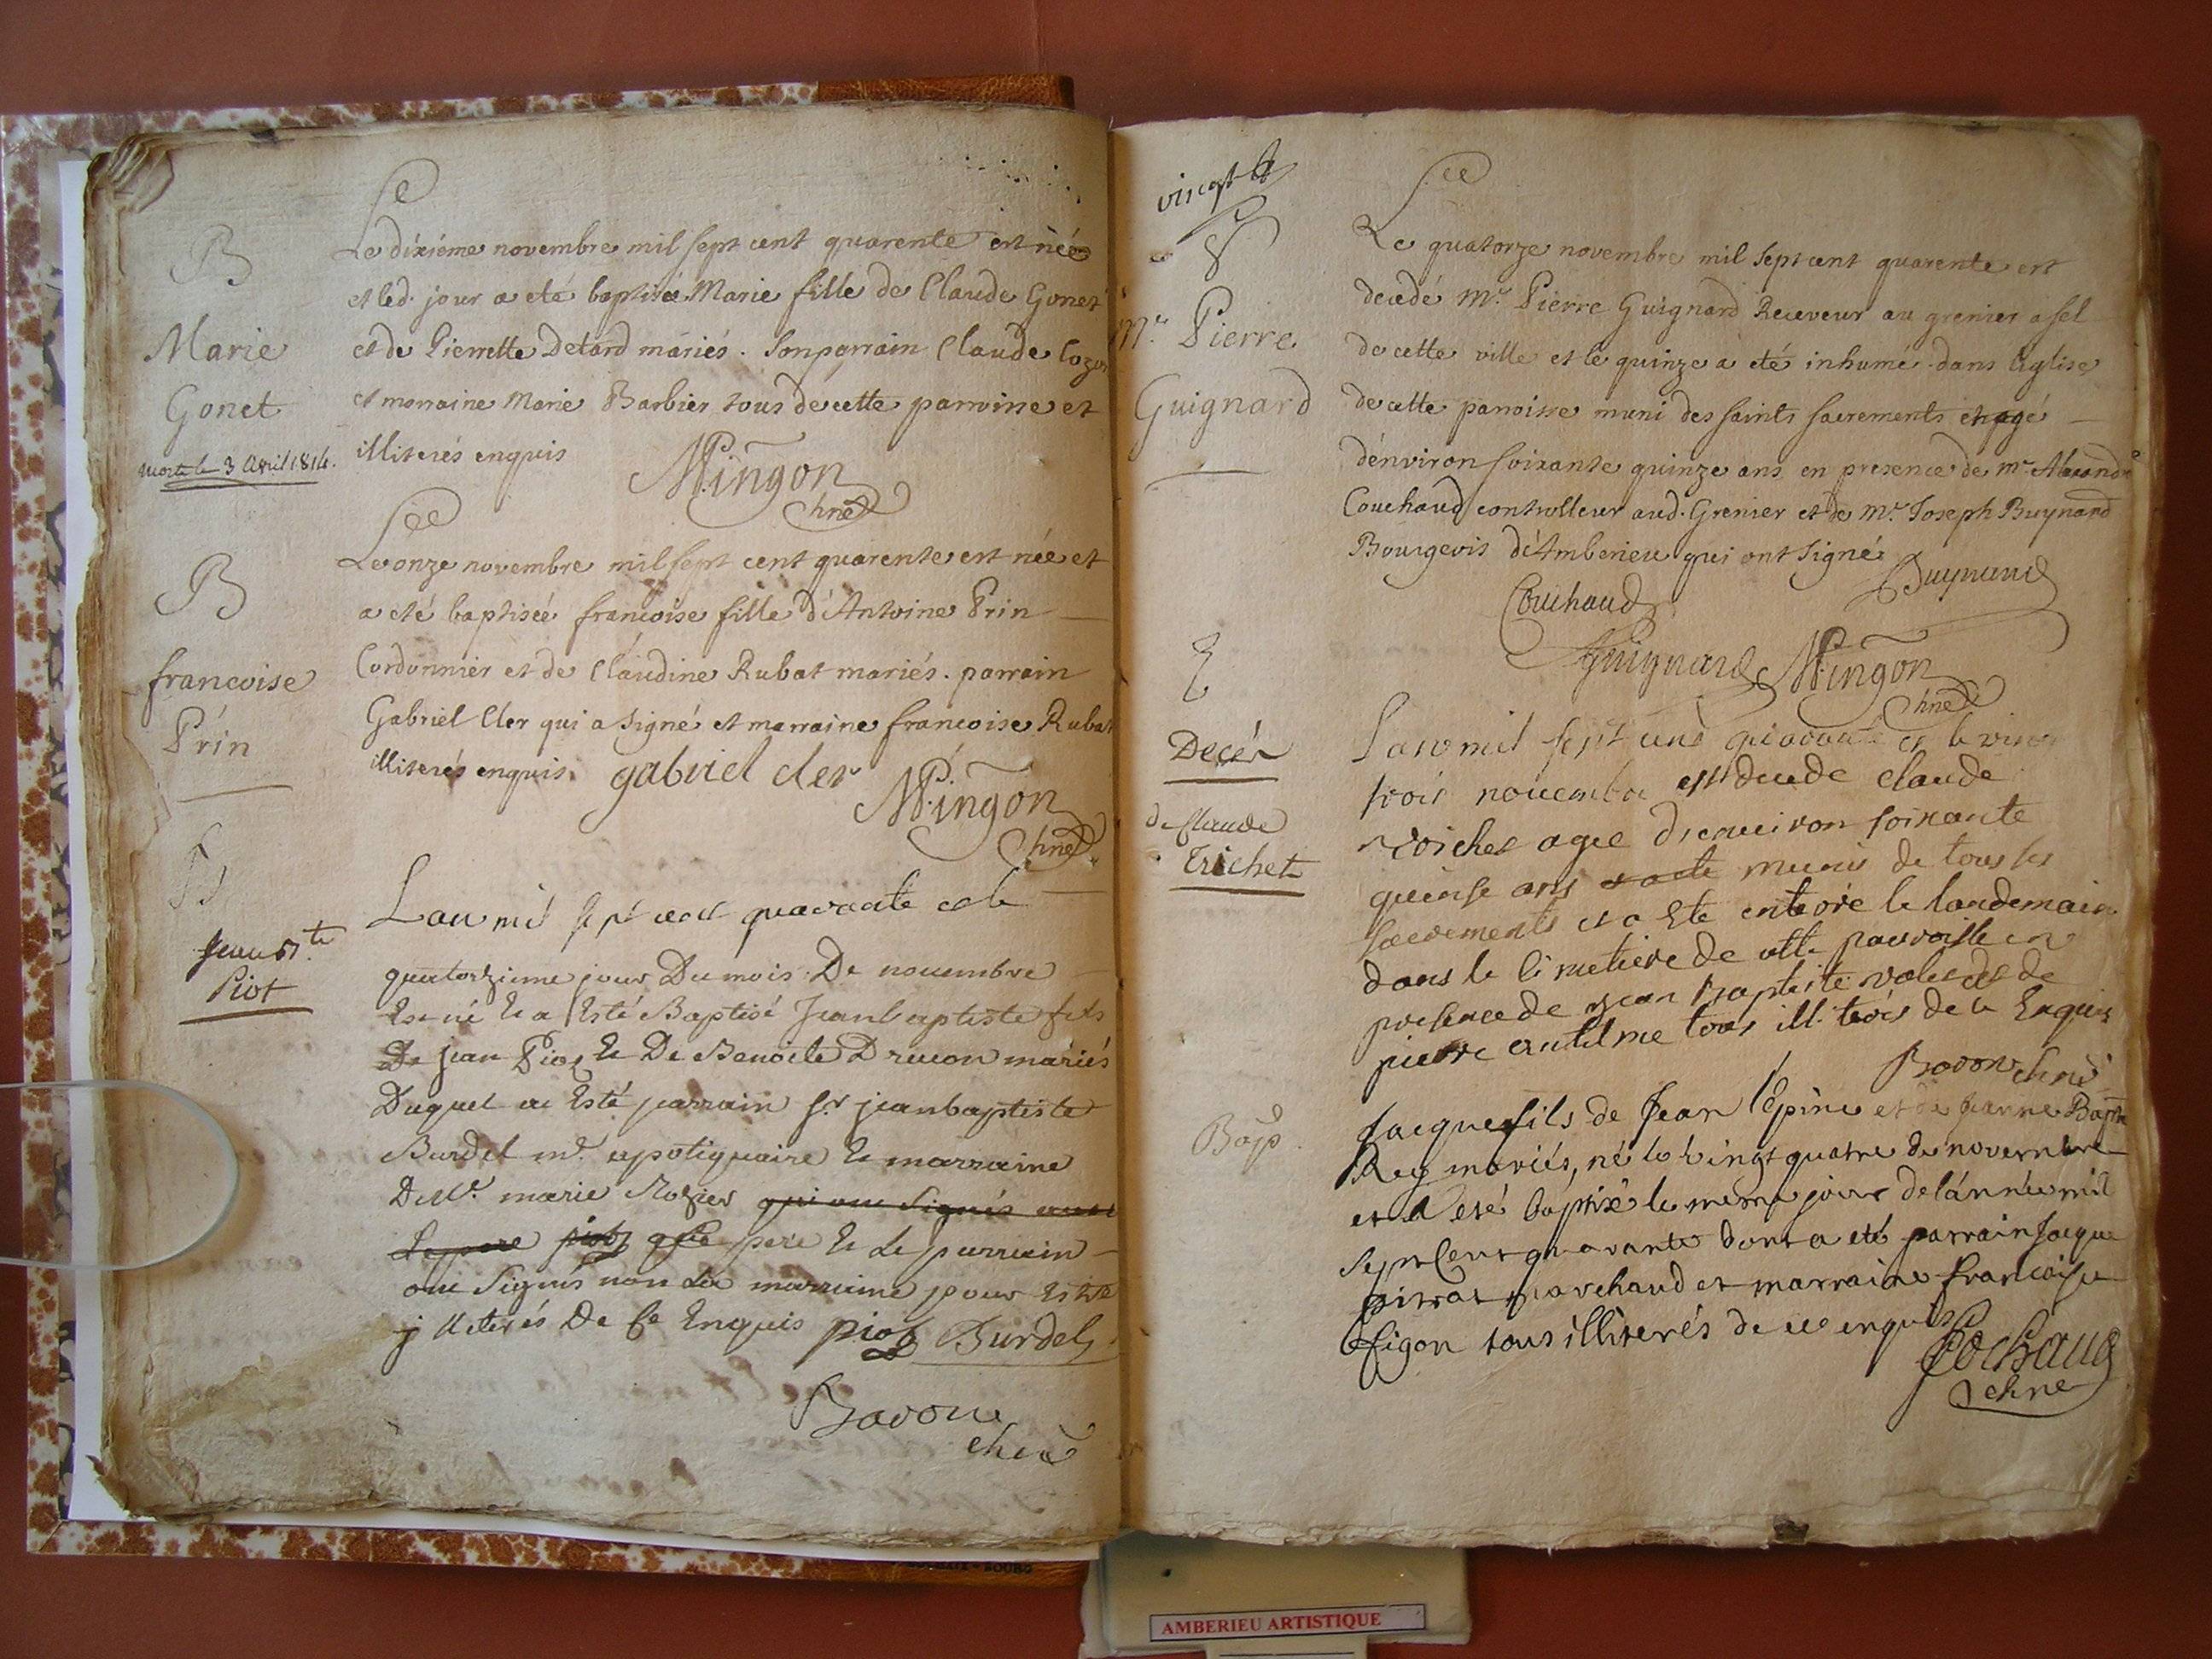 B
Marie
Gonet
morte le 3 Avril 1814.
Le dixiéme novembre mil sept cent quarente est née
et led. jour a eté baptisée Marie fille de Claude Gonet
et de Pierrette Detard mariés. son parrain Claude
et marraine Marie Barbier tous de cette parroisse et
illiterés enquis
Mingon
chne
B
francoise
Prin
Le onze novembre mil sept cent quarente est née et
a eté baptisée francoise fille d'Antoine Prin
Cordonnier et de Claudine Rubat mariés. parrain
Gabriel Cler qui a signé et marraine francoise Rubat
illiterés enquis. gabriel cler
Mingon
chne
Jean Bte
Piot
Lan mil sept cent quarante et le
quatorzieme jour Du mois De novembre
Est né Et a Esté Baptisé Jean baptiste fils
De jean Piot Et De Benoite Druon mariés
Duquel a Esté parrain sr jean baptiste
Burdel md. apotiquaire Et marraine
Delle. marie Rozier qui ont signés avec
Le pere piot que pere Et Le parrain
ont signés non La marraine pour Estre
jlliterés De Ce Enquis piot Burdel
Bavoux
chne
vingt
Mr. Pierre
Guignard
Le quatorze novembre mil sept cent quarente est
decedé Mr. Pierre Guignard Receveur au grenier a sel
de cette ville et le quinze a eté inhumé dans l'eglise
de cette parroisse muni des saints sacrements et agé
d'environ soixante quinze ans en presence de mr. Alexandre
Couchaud controlleur aud. Grenier et de Mr. Joseph Buynand
Bourgeois d'Amberieu qui ont signé
Couchaud Buynand
Guignard Mingon
chne
Decés
de Claude
Trichet
Lan mil sept cend quarante et le vingt
trois novembre est decede claude
trichet agee denviron soixante
quinse ans munis de tous ses
sacrements et a Ete enterré le landemain
dans le Cimetiere de cette parroisse en
presence de jean baptiste et de
pierre tous illiterés de ce Enquis
Bavoux chne
Bap.
Jacque fils de Jean l'Epine et de Jeanne Bapte
Rey mariés, né le vingt quatre de novembre
et a eté baptisé le meme jour de l'année mil
sept Cent quarante dont a eté parrain Jacque
pitrat marchand et marraine francoise
figon tous illiterés de ce enquis
Cochaud
chne
AMBERIEU ARTISTIQUE